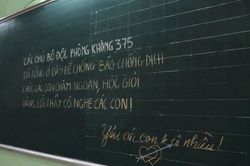 CÁC CHÚ BỘ ĐỘI PHÒNG KHÔNG 375
ĐÃ TỪNG Ở ĐÂY ĐỂ CHỐNG BÃO CHỐNG DỊCH
CHÚC CÁC CON CHĂM NGOAN, HỌC GIỎI
VÂNG LỜI THẦY CÔ NGHE CÁC CON!
Yêu các con & cô nhiều!